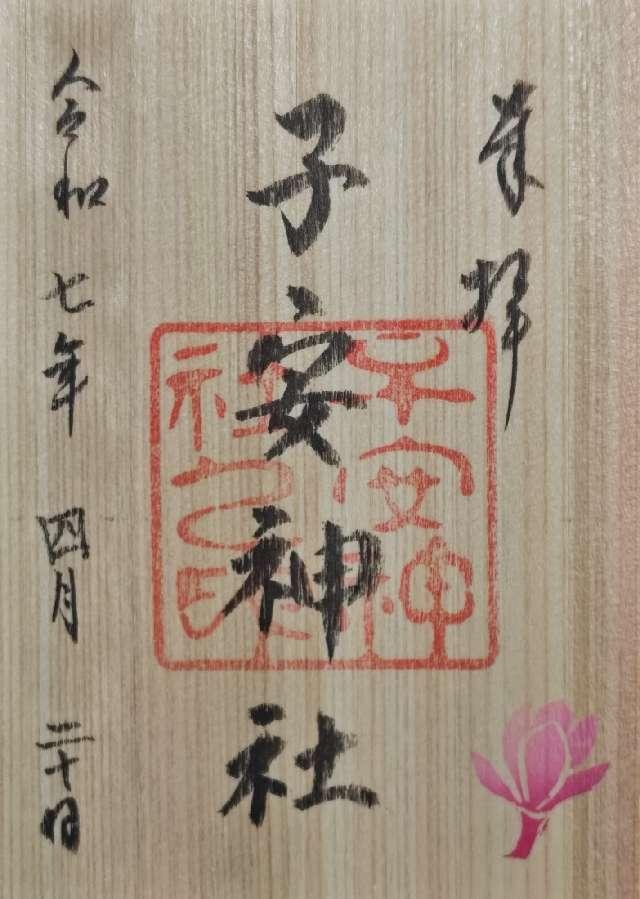 奉拝
子安神社
令和七年 四月 二十日
子安神
社之印